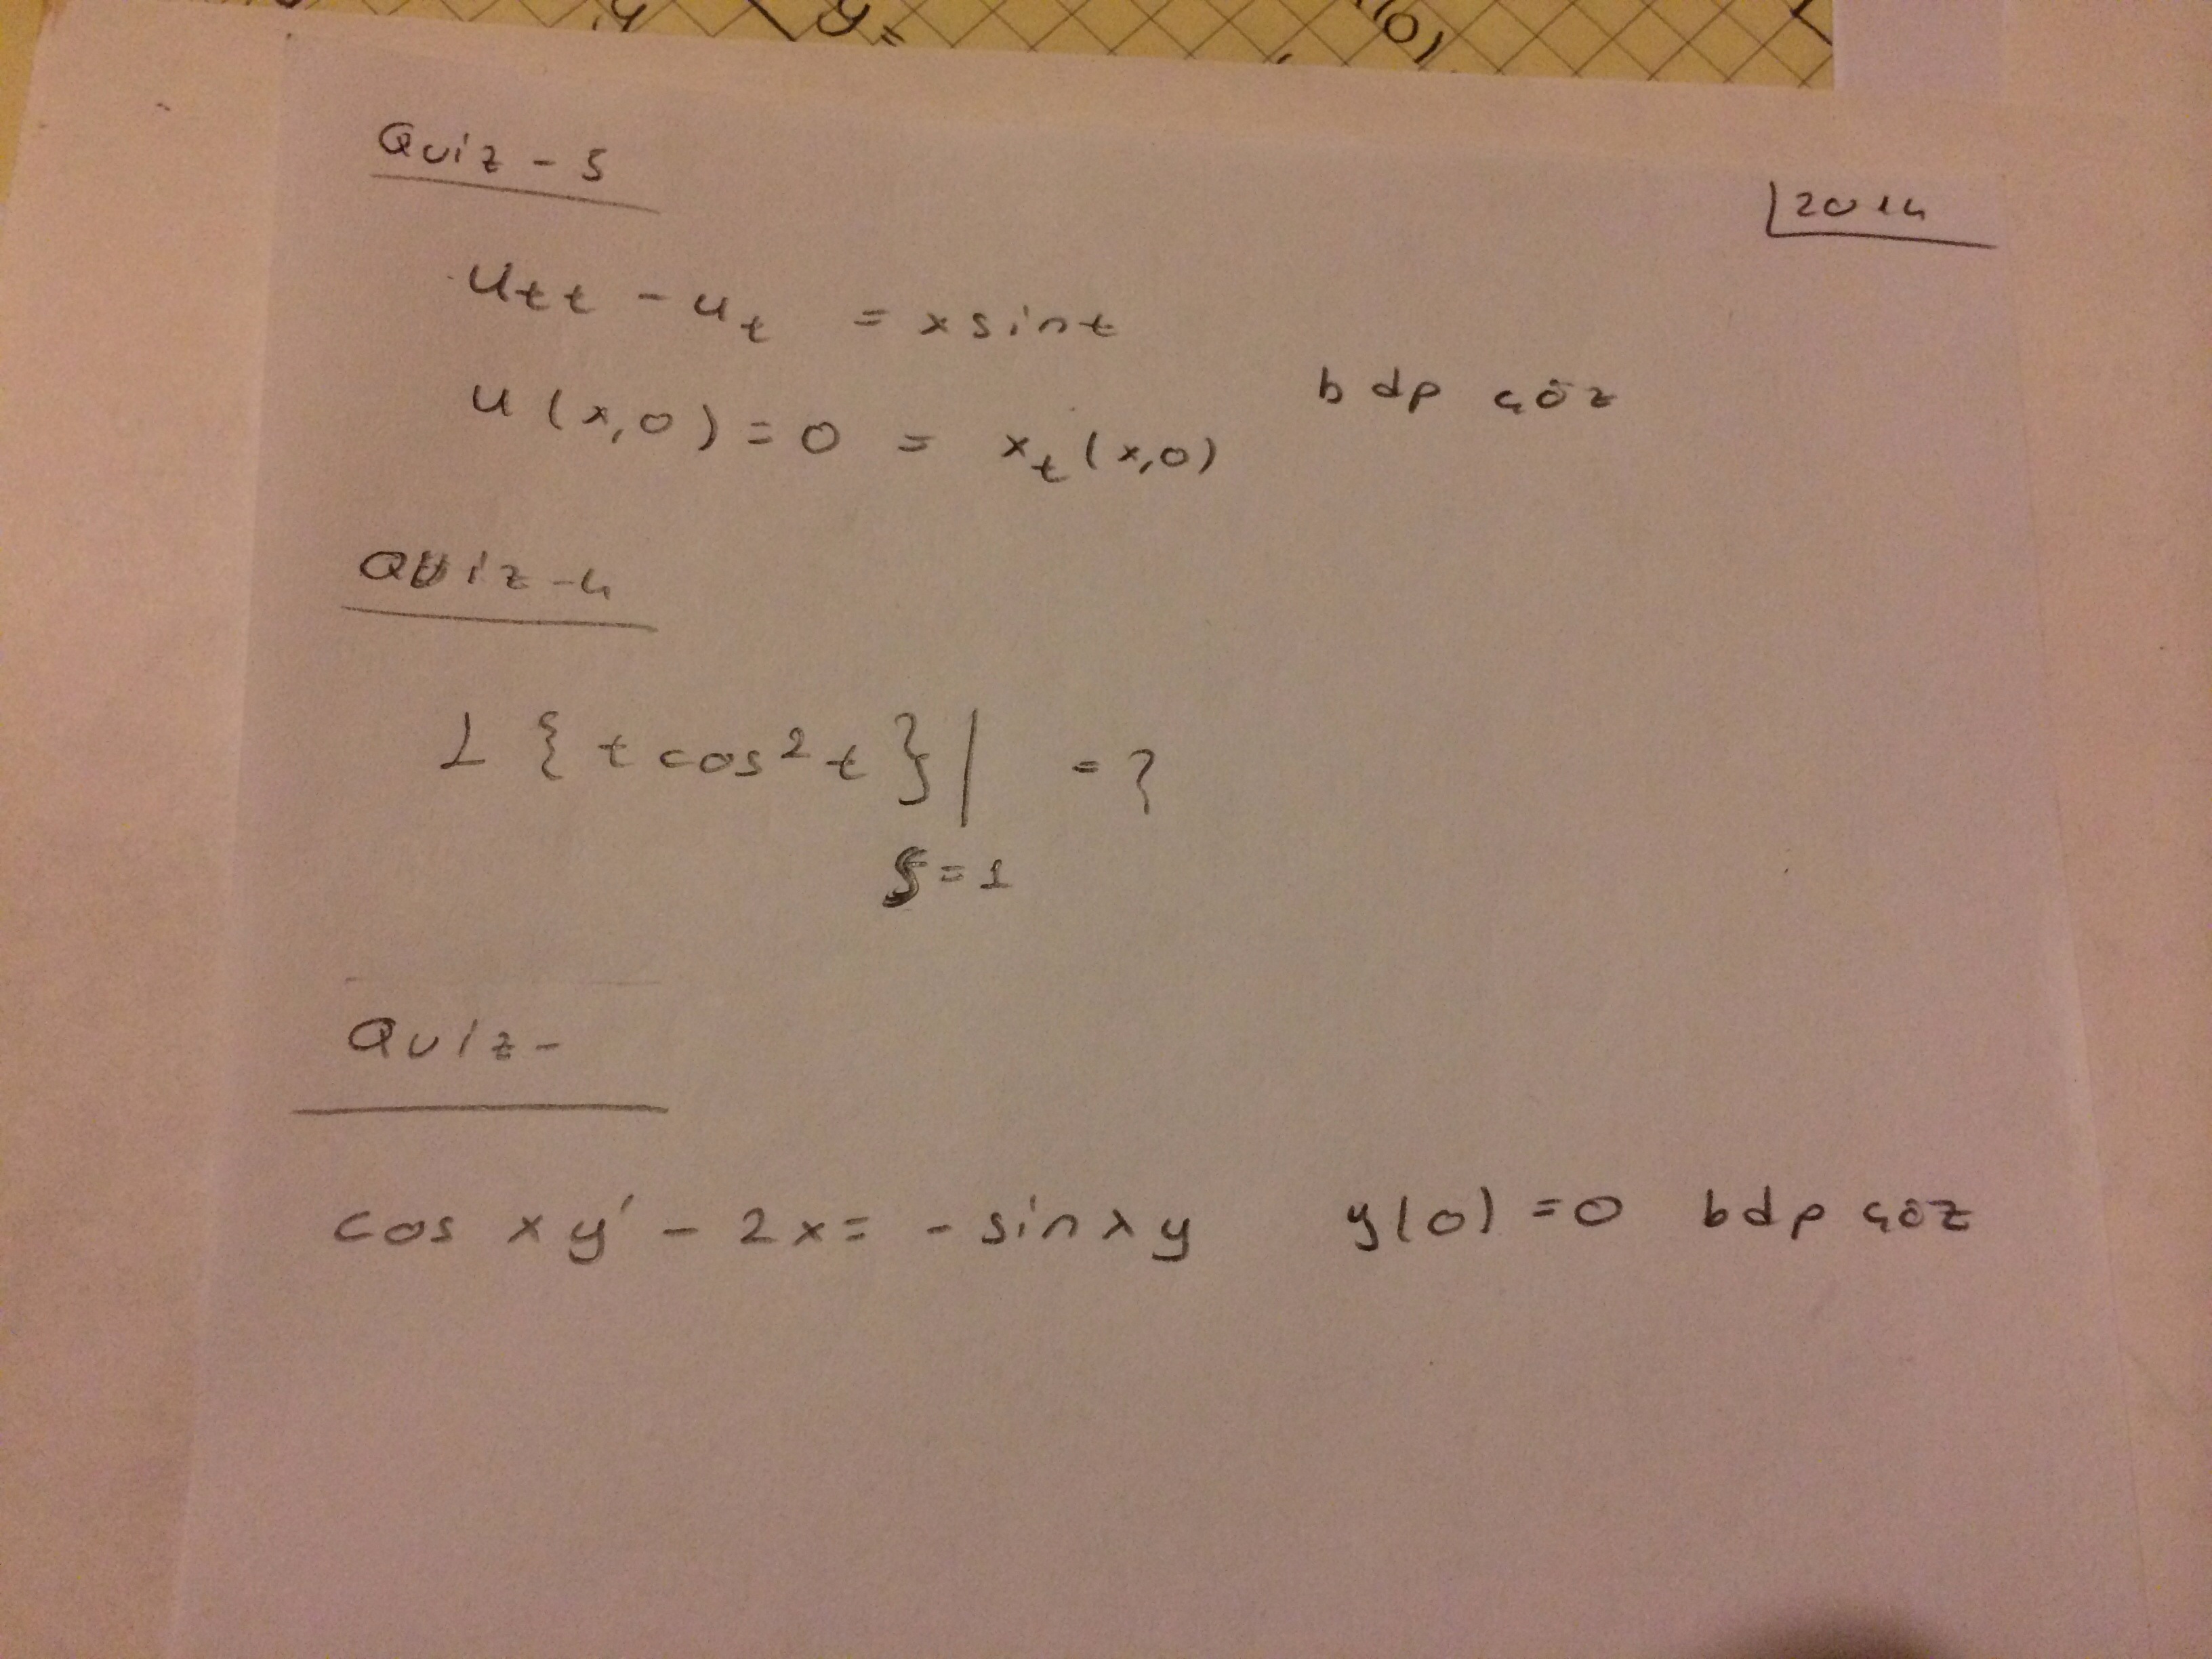 y =
(0)
Quiz - 5
2014
u_tt - u_t = x sint
u (x,0) = 0 = x_t (x,0)
bdp çöz
Quiz - 4
L { t cos² t } | = ?
s = 1
Quiz -
cos x y' - 2x = - sin x y y(0) = 0 bdp çöz